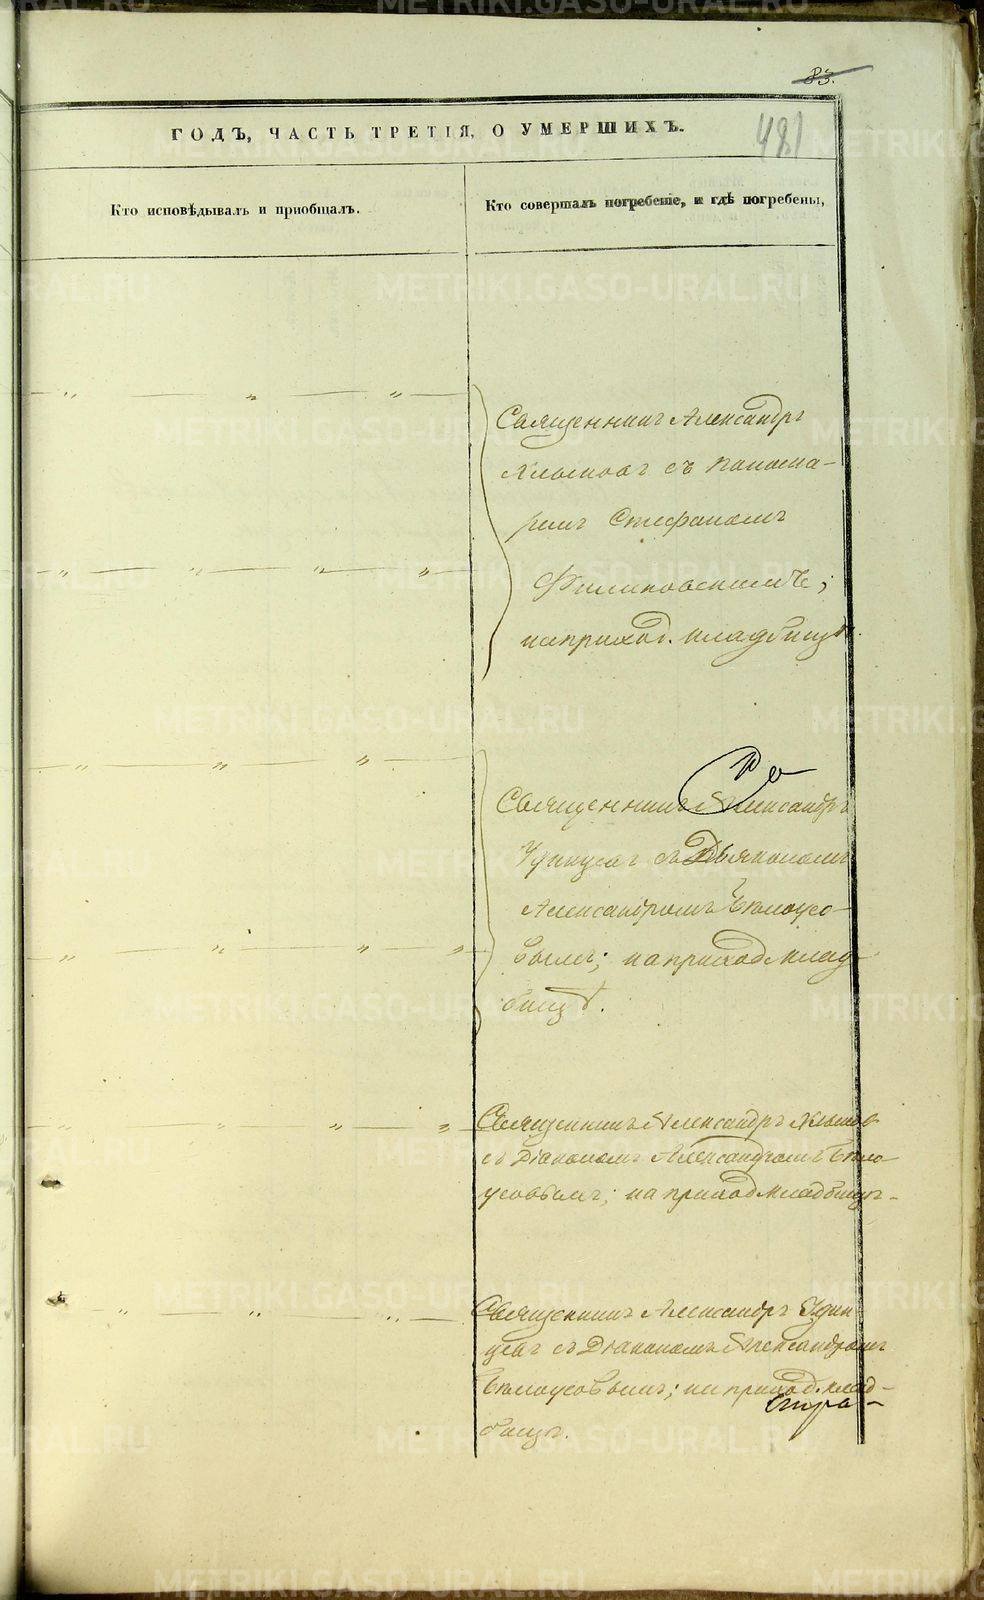 83.
481
ГОДЪ, ЧАСТЬ ТРЕТІЯ, О УМЕРШИХЪ.
Кто исповѣдывалъ и приобщалъ.
Кто совершалъ погребеніе, и гдѣ погребены,
Священникъ Александръ
Хлыновъ съ понома-
ремъ Стефаномъ
Филиповскимъ;
на приход. кладбищѣ.
Священникъ Александръ
Удинцевъ съ Дьякономъ
Александромъ Бѣлоусо-
вымъ; на приход кладб-
бищѣ.
Священникъ Александръ Хлыновъ
съ Діакономъ Александромъ Бѣло-
усовымъ; на приход кладбищѣ.
Священникъ Александръ Удин-
цевъ съ Діакономъ Александромъ
Бѣлоусовымъ; на приход. клад-
бищѣ.
METRIKI.GASO-URAL.RU